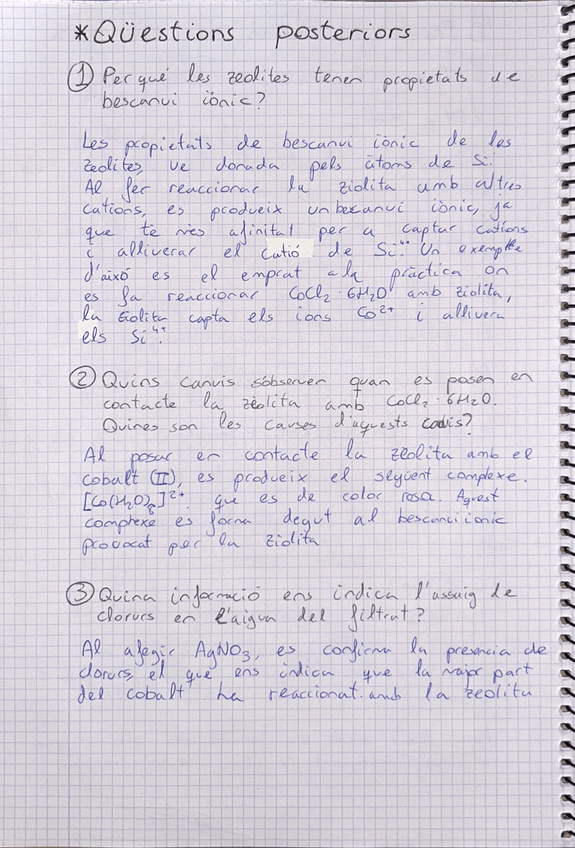 *Qüestions posteriors
① Perquè les zeolites tenen propietats de
bescanvi iònic?
Les propietats de bescanvi iònic de les
zeolites, ve donada pels àtoms de Si.
Al fer reaccionar la ziolita amb altres
cations, es produeix un bescanvi iònic, ja
que te mes afinitat per a captar cations
i alliverar el catió de Si⁴⁺. Un exemple
d'això es el emprat a la pràctica on
es fa reaccionar CoCl₂·6H₂O amb ziolita,
la ziolita capta els ions Co²⁺ i allivera
els Si⁴⁺.
② Quins canvis s'observen quan es posen en
contacte la zeolita amb CoCl₂·6H₂O.
Quines son les causes d'aquests canvis?
Al posar en contacte la zeolita amb el
cobalt (II), es produeix el següent complexe.
[Co(H₂O)₆]²⁺ que es de color rosa. Aquest
complexe es forma degut al bescanvi ionic
provocat per la ziolita
③ Quina informació ens indica l'assaig de
clorurs en l'aigua del filtrat?
Al afegir AgNO₃, es confirma la presencia de
clorurs, el que ens indica que la major part
del cobalt ha reaccionat amb la zeolita